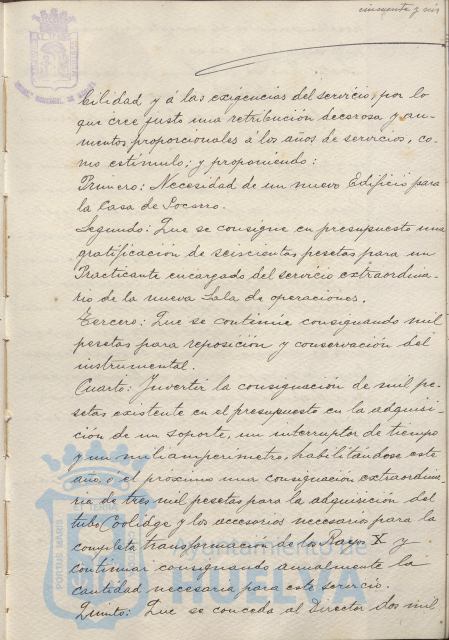 cincuenta y seis
bilidad y á las exigencias del servicio, por lo
que cree justo una retribución decorosa y au-
mentos proporcionales á los años de servicios, co-
mo estímulo; y proponiendo:
Primero: Necesidad de un nuevo Edificio para
la Casa de Socorro.
Segundo: Que se consigne en presupuesto una
gratificación de seiscientas pesetas para un
Practicante encargado del servicio extraordina-
rio de la nueva Sala de operaciones.
Tercero: Que se continúe consignando mil
pesetas para reposición y conservación del
instrumental.
Cuarto: Invertir la consignación de mil pe-
setas existente en el presupuesto en la adquisi-
ción de un soporte, un interruptor de tiempo
y un miliamperimetro, habilitandose este
año, ó el próximo una consignación extraordina-
ria de tres mil pesetas para la adquisición del
tubo Coolidge y los accesorios necesarios para la
completa transformación de los Rayos X y
continuar consignando anualmente la
cantidad necesaria para este servicio.
Quinto: Que se conceda al Director dos mil
PORTUS MARIS
TERRAE
Ayuntamiento de
HUELVA